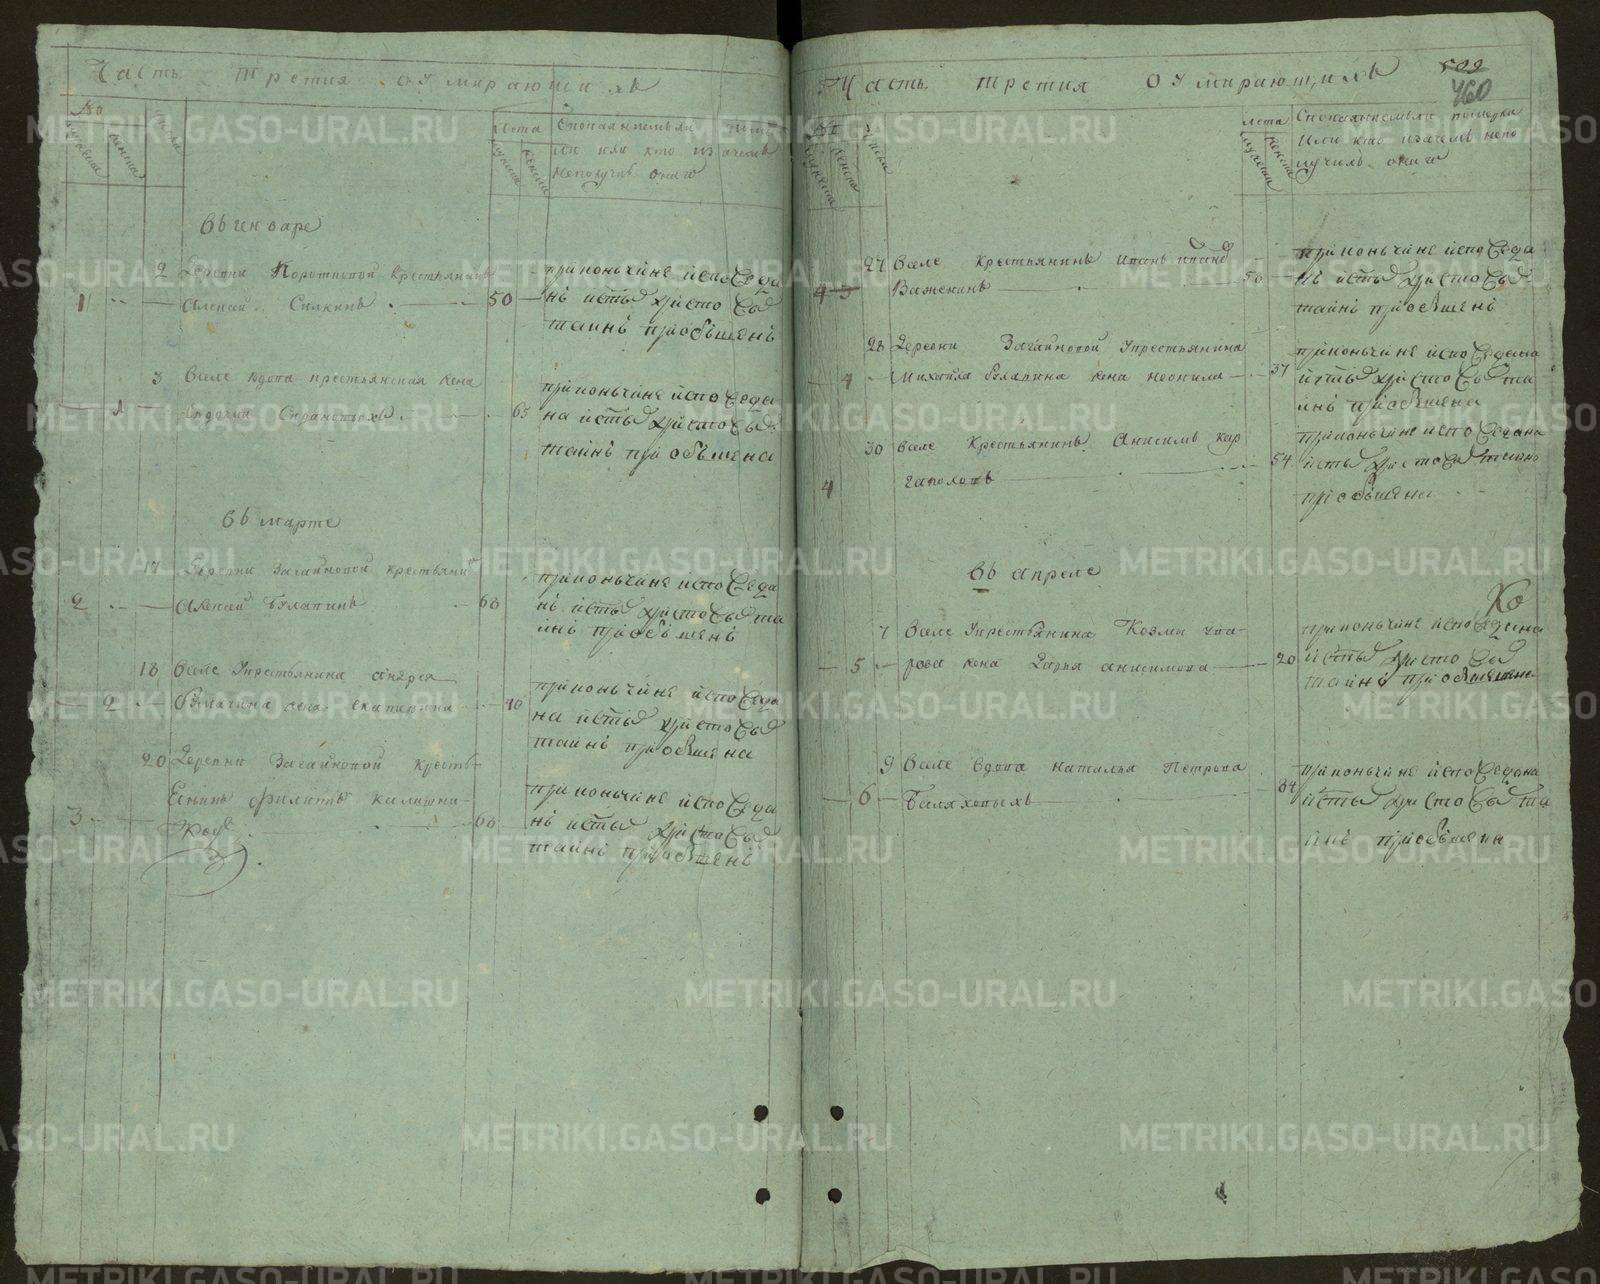 Часть третия о умирающихъ
№
мужеска
женска
числы
лета
мужеска
женска
Споткаянием ли
ли или кто и зачемъ
неполучивъ онаго
Въ генваре
2 Деревни Коротковой крестьянинъ
1 Алексей Силкинъ 50
при кончине исповеда
нъ и стых христовых
таинъ приобъщенъ
3 Вселе вдова крестьянская жена
1 65
при кончине исповеда
на и стых христовых
таинъ приобъщена
Въ марте
17 Деревни Загайновой крестьянинъ
2 Алексей Булапинъ 60
при кончине исповеда
нъ и стых христовых та
инъ приобъщенъ
18 Вселе Крестьянина андрея
2 жена екатерина 40
при кончине исповеда
на и стых христовых
таинъ приобъщена
20 Деревни Загайновой кресть-
янинъ Филипъ калашни-
3 ковъ 60
при кончине исповеда
нъ и стых христовых
таинъ приобъщенъ
Часть третия о умирающихъ
509
460
мужеска
женска
числы
лета
мужеска
женска
или кто и зачемъ непо
лучилъ онаго
27 Вселе Крестьянинъ Иванъ ивановъ
4 3 Важенинъ 50
при кончине исповеда
нъ и стых христовых
таинъ приобъщенъ
28 Деревни Загайновой Крестьянина
4 Михаила Булапина жена неонила 37
при кончине исповедана
и стых христовых та
инъ приобъщена
30 Вселе Крестьянинъ Анисимъ кар
4 гаполовъ 54
при кончине исповедана
и стых христовых таинъ
приобъщена
Въ апреле
7 Вселе Крестьянина Козмы ува-
5 рова жена Дарья анисимова 20
при кончине исповедана
и стых христовых
таинъ приобъщена
9 Вселе вдова наталья Петрова
6 Балаховыхъ 84
при кончине исповедана
и стых христовых та
инъ приобъщена
METRIKI.GASO-URAL.RU